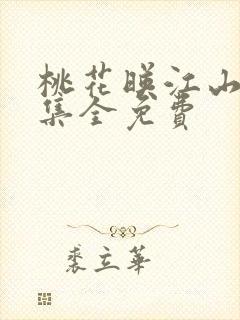 桃花暎江山
集全免費
裘立華